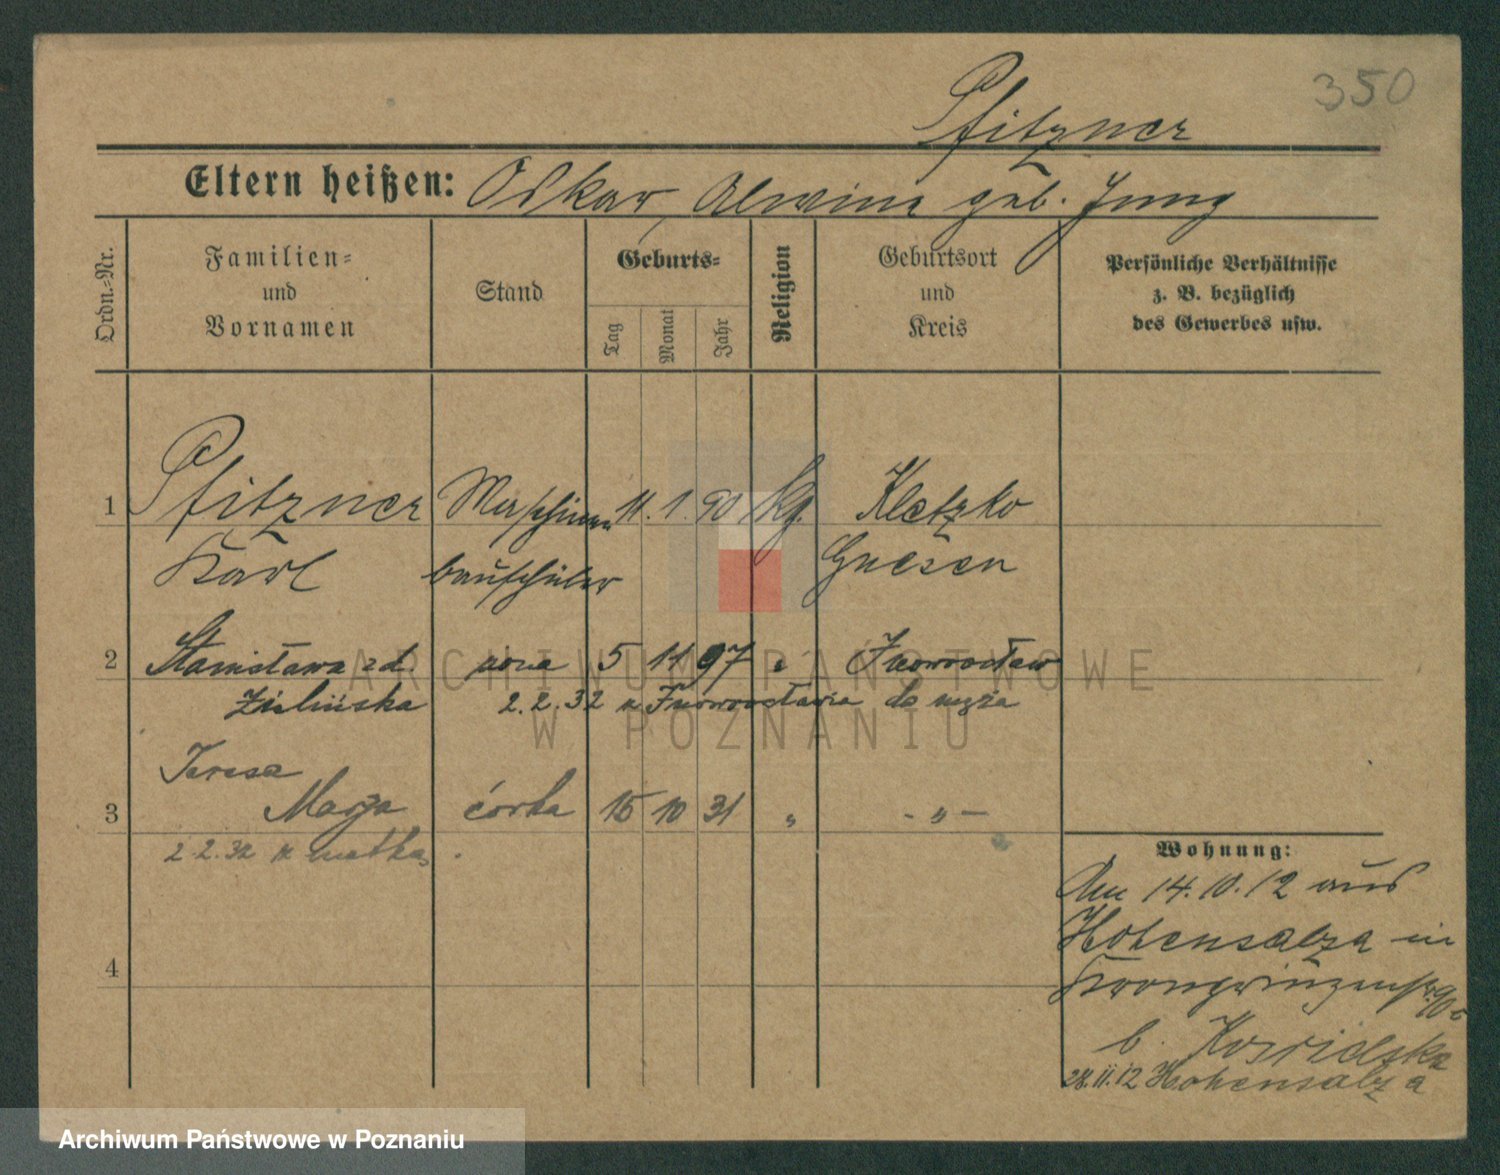 350
Pfitzner
Eltern heißen: Oskar, Alwine geb. Jung
Ordn.=Nr.
Familien=
und
Vornamen
Stand
Geburts=
Tag
Monat
Jahr
Religion
Geburtsort
und
Kreis
Persönliche Verhältnisse
z. B. bezüglich
des Gewerbes usw.
1 Pfitzner Maschinen 11. 1. 90 kg. Kletzko
Karl bauschüler Gnesen
2 Stanisława zd. żona 5 11 97 " Inowrocław
Zielińska 2.2.32 z Inowrocławia do męża
Teresa
3 Marja córka 15 10 31 " - " -
2 2.32 z matką.
4
Wohnung:
Am 14.10.12 aus
Hohensalza in
Kronprinzenstr.
b.
28.11.12 Hohensalza
ARCHIWUM PAŃSTWOWE
W POZNANIU
Archiwum Państwowe w Poznaniu